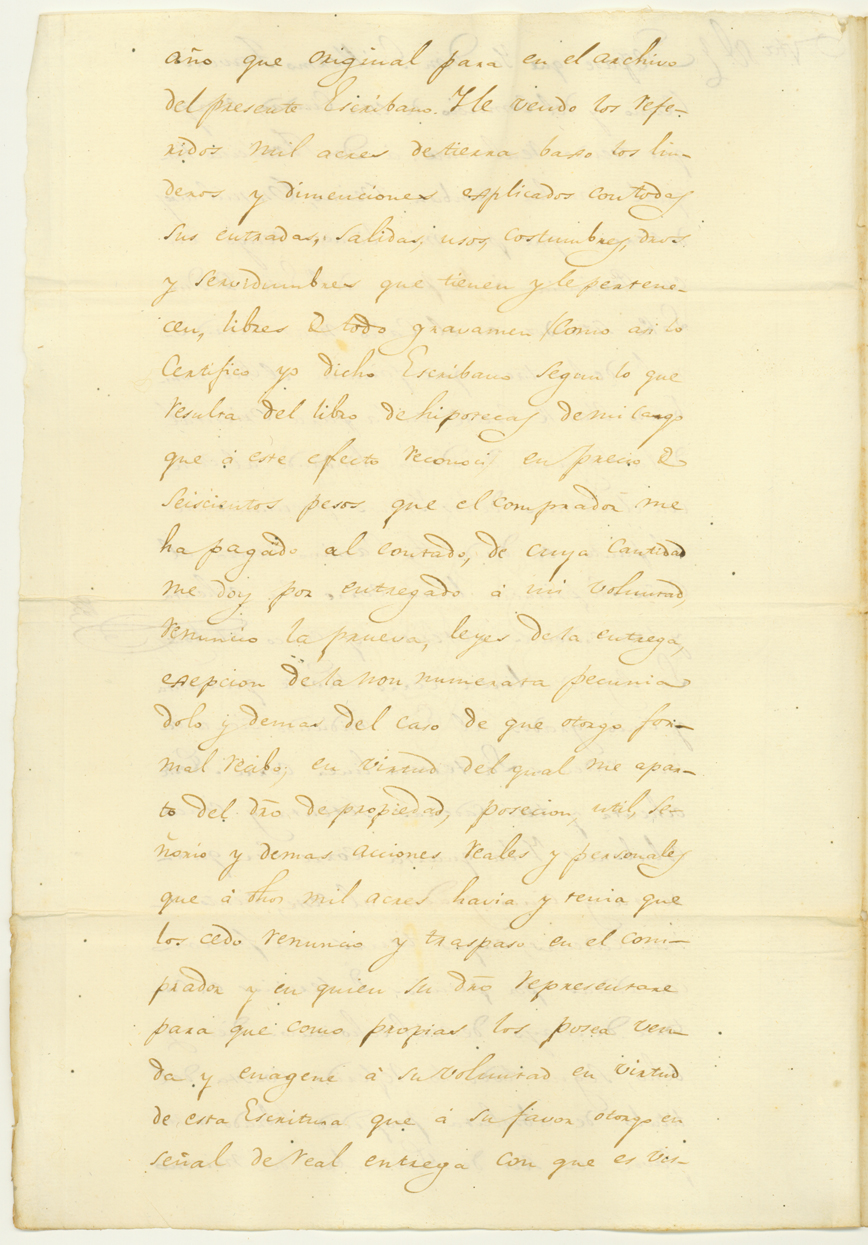 año que original para en el archivo
del presente Escribano. I le vendo los refe-
ridos mil acres de tierra baxo los lin-
deros y dimenciones esplicados con todas
sus entradas, salidas, usos, costumbres, dros.
y servidumbres que tienen y le pertene-
cen, libres de todo gravamen (como asi lo
Certifico yo dicho Escribano segun lo que
resulta del libro de hipotecas de mi cargo
que á este efecto reconocí en precio de
seiscientos pesos que el comprador me
ha pagado al contado, de cuya cantidad
me doy por entregado á mi voluntad
renuncio la prueva, leyes de la entrega,
esepcion de la non numerata pecunia
dolo y demas del caso de que otorgo for-
mal recibo; en virtud del qual me apar-
to del dro de propiedad, posecion, util, se-
ñorio y demas acciones reales y personales
que á dhos mil acres havia y tenia que
los cedo renuncio y traspaso en el com-
prador y en quien su dro representare
para que como propias los posea ven-
da y enagene á su voluntad en virtud
de esta Escritura que á su favor otorgo en
señal de real entrega con que es vis-